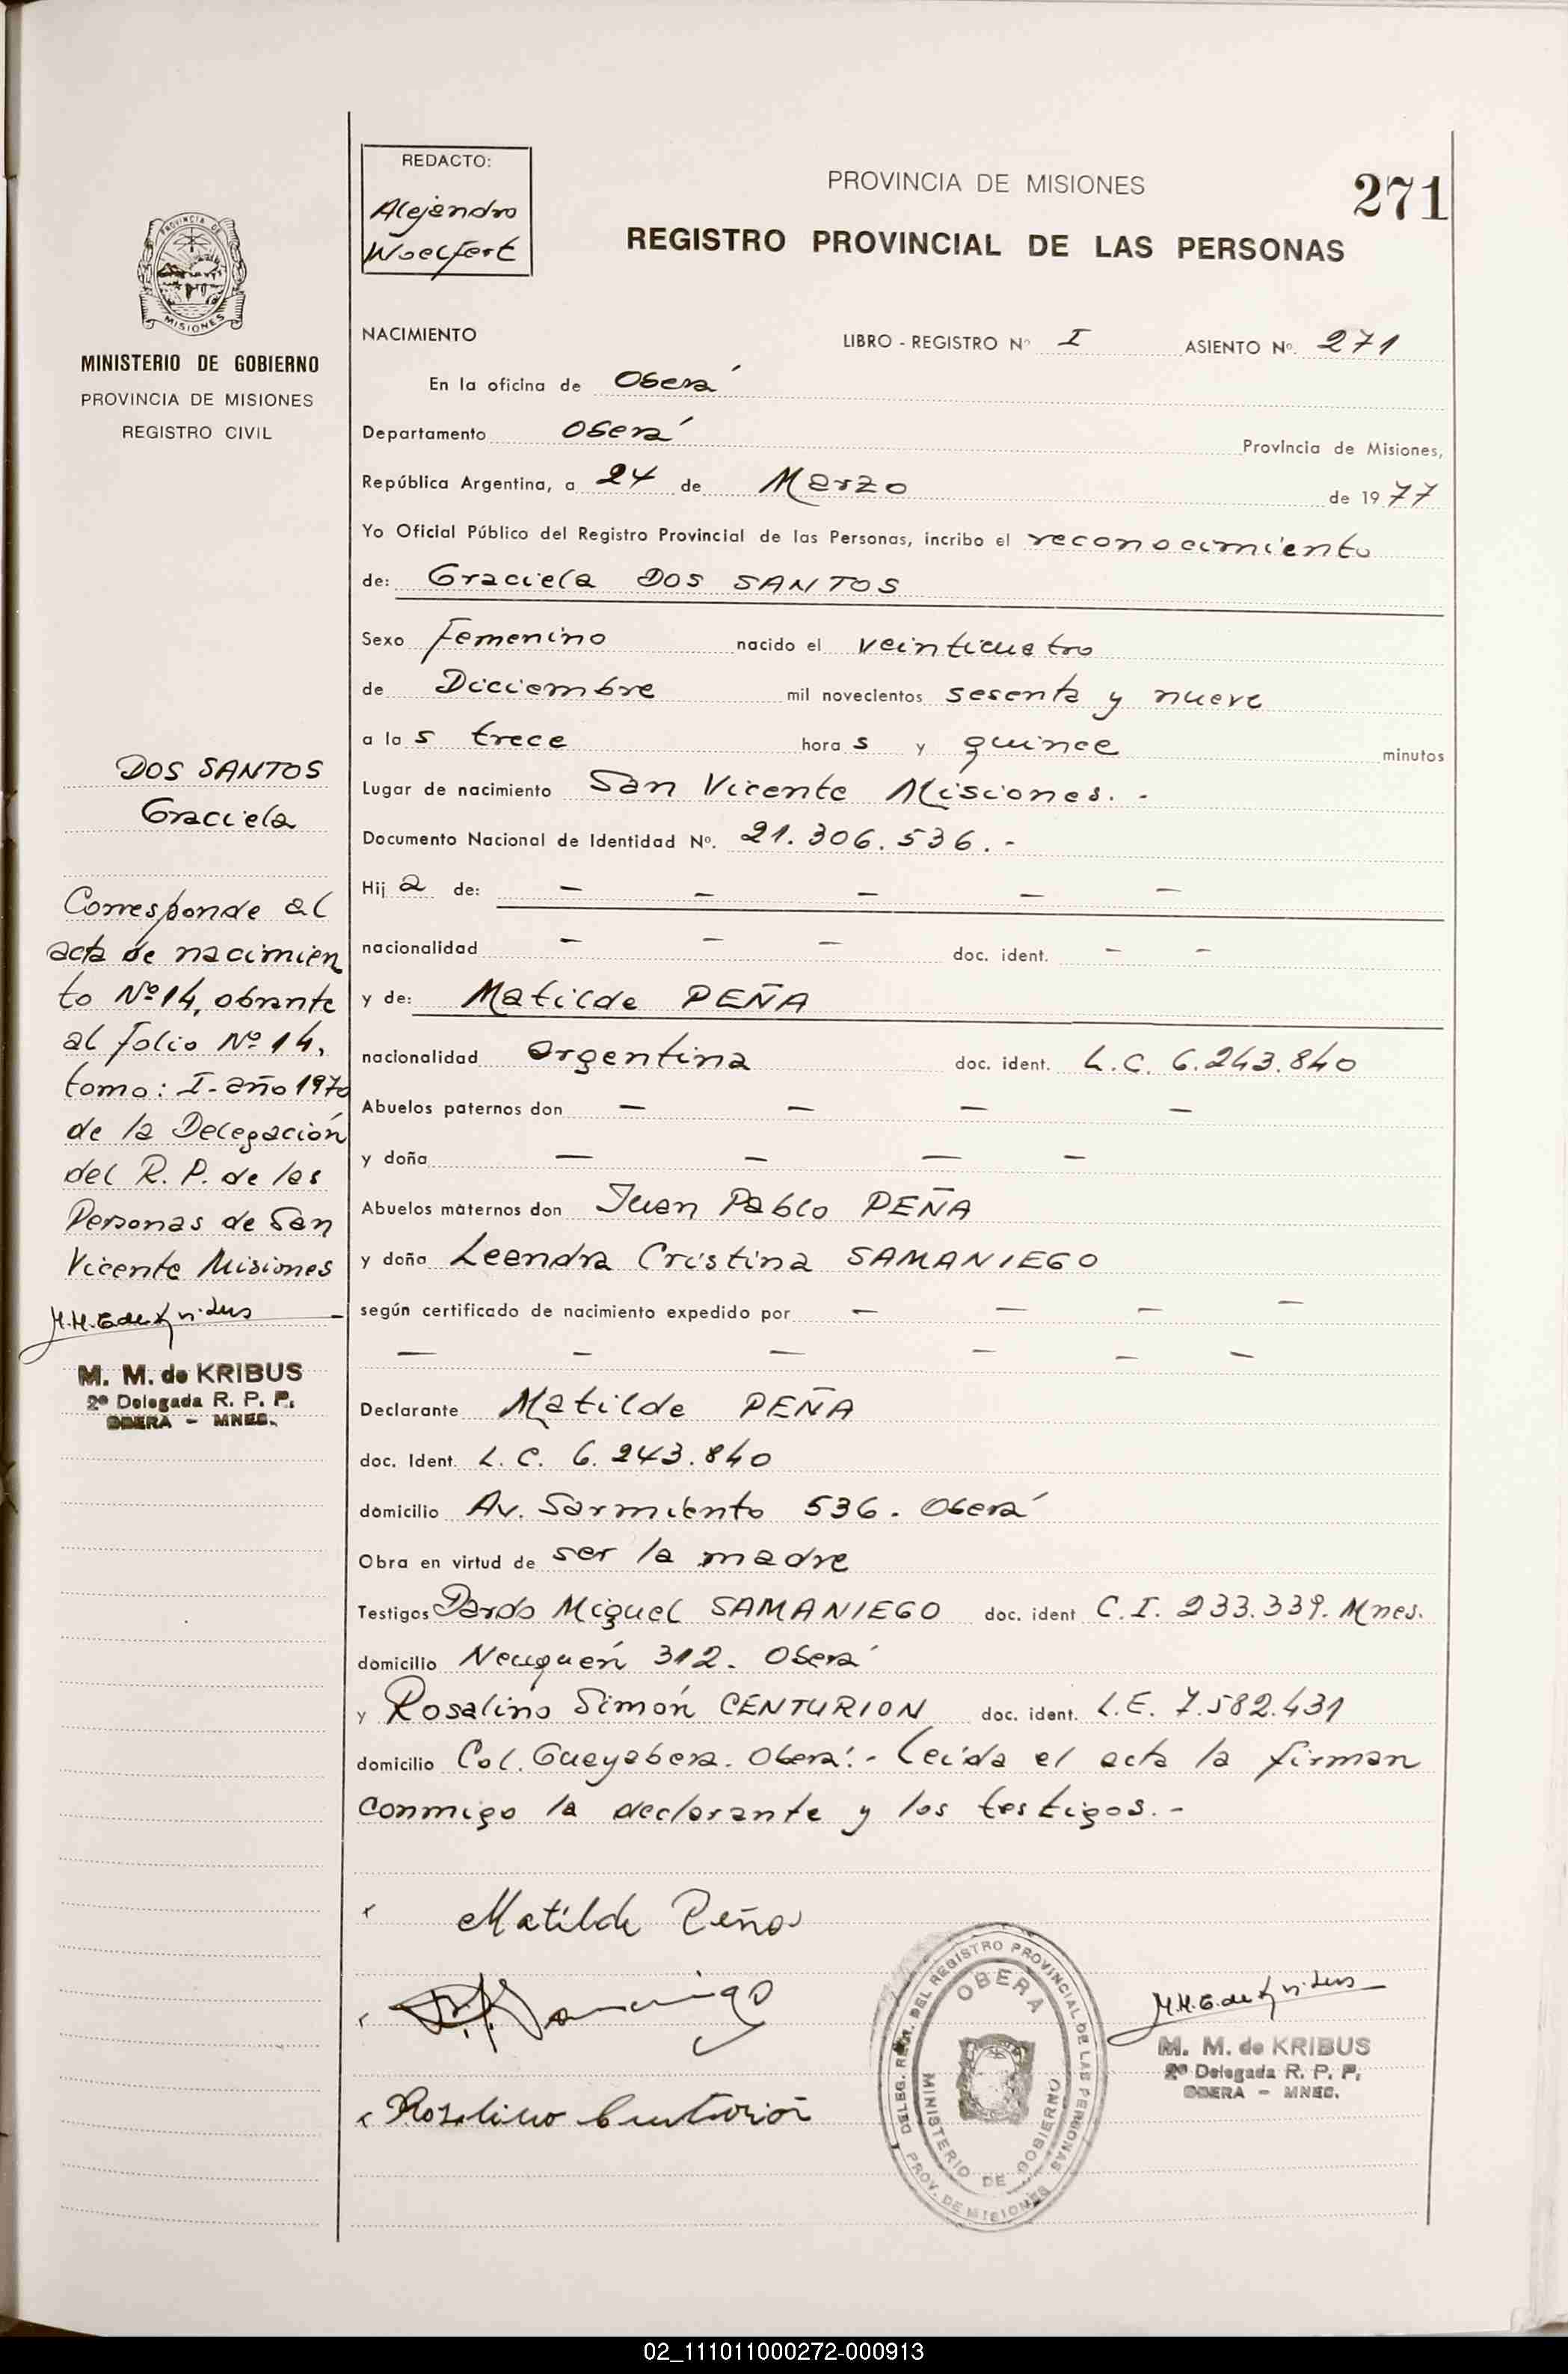 REDACTO:
Alejandro
Woelfert
PROVINCIA DE MISIONES
271
REGISTRO PROVINCIAL DE LAS PERSONAS
PROVINCIA DE
MISIONES
MINISTERIO DE GOBIERNO
PROVINCIA DE MISIONES
REGISTRO CIVIL
NACIMIENTO LIBRO - REGISTRO Nº I ASIENTO Nº. 271
En la oficina de Oberá
Departamento Oberá Provincia de Misiones,
República Argentina, a 24 de Marzo de 1977
Yo Oficial Público del Registro Provincial de las Personas, incribo el reconocimiento
de: Graciela DOS SANTOS
Sexo Femenino nacido el veinticuatro
de Diciembre mil novecientos sesenta y nueve
a las trece horas y quince minutos
Lugar de nacimiento San Vicente Misiones. -
Documento Nacional de Identidad Nº. 21.306.536. -
Hija de: — — — — —
nacionalidad — — — doc. ident. — —
y de: Matilde PEÑA
nacionalidad argentina doc. ident. L.C. 6.243.840
Abuelos paternos don — — — —
y doña — — — —
Abuelos maternos don Juan Pablo PEÑA
y doña Leandra Cristina SAMANIEGO
según certificado de nacimiento expedido por — — — —
— — — — — —
Declarante Matilde PEÑA
doc. Ident. L. C. 6. 243.840
domicilio Av. Sarmiento 536. Oberá
Obra en virtud de ser la madre
Testigos Dardo Miguel SAMANIEGO doc. ident C.I. 233.339. Mnes.
domicilio Neuquén 312. Oberá
y Rosalino Simón CENTURION doc. ident. L.E. 7.582.431
domicilio Col. Guayabera. Oberá. - Leída el acta la firman
conmigo la declarante y los testigos. -
DOS SANTOS
Graciela
Corresponde al
acta de nacimien
to Nº 14, obrante
al folio Nº 14,
tomo: I - año 1970
de la Delegación
del R. P. de las
Personas de San
Vicente Misiones
M. M. de KRIBUS
2º Delegada R. P. P.
OBERA - MNES.
Matilde Peña
Rosalino Centurión
DELEG. REG. DEL REGISTRO PROVINCIAL DE LAS PERSONAS
OBERA
MINISTERIO DE GOBIERNO
PROV. DE MISIONES
M. M. de KRIBUS
2º Delegada R. P. P.
OBERA - MNES.
02_111011000272-000913